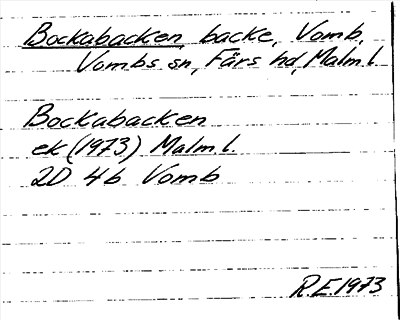 Bockabacken, backe, Vomb,
Vombs sn, Färs hd, Malm l.
Bockabacken
ek (1973) Malm l.
2D 4b Vomb
R.E. 1973